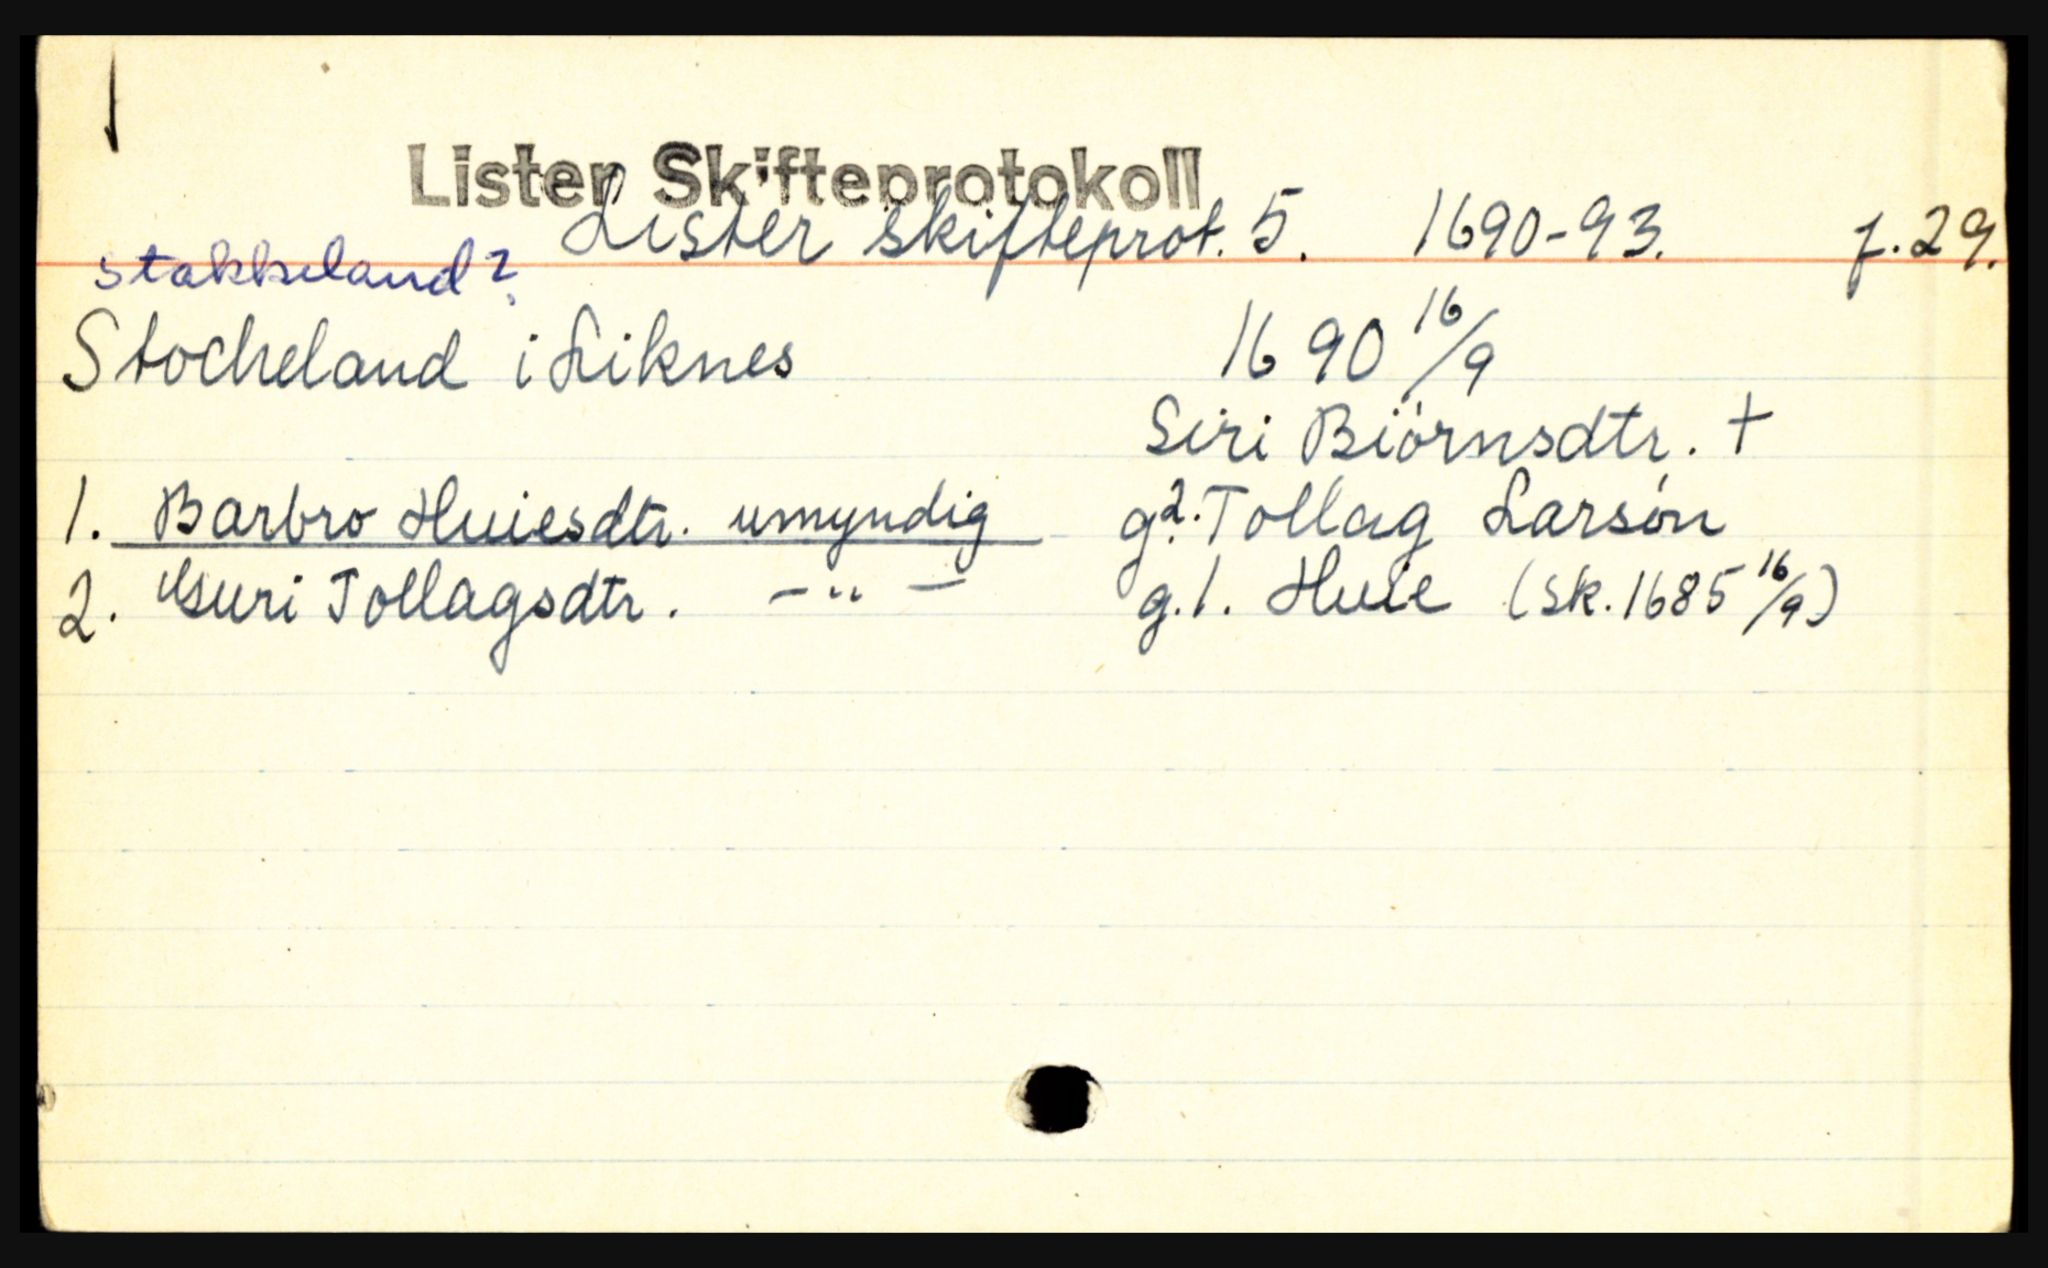 Lister Skifteprotokoll
Lister Skifteprot. 5. 1690-93. f. 29.
Stakkeland?
Stocheland i Liknes 1690 16/9
Siri Biörnsdtr. †
1. Barbro Huiesdtr. umyndig g2. Tollag Larsön
2. Guri Tollagsdtr. - " - g.1. Huie (sk. 1685 16/9)